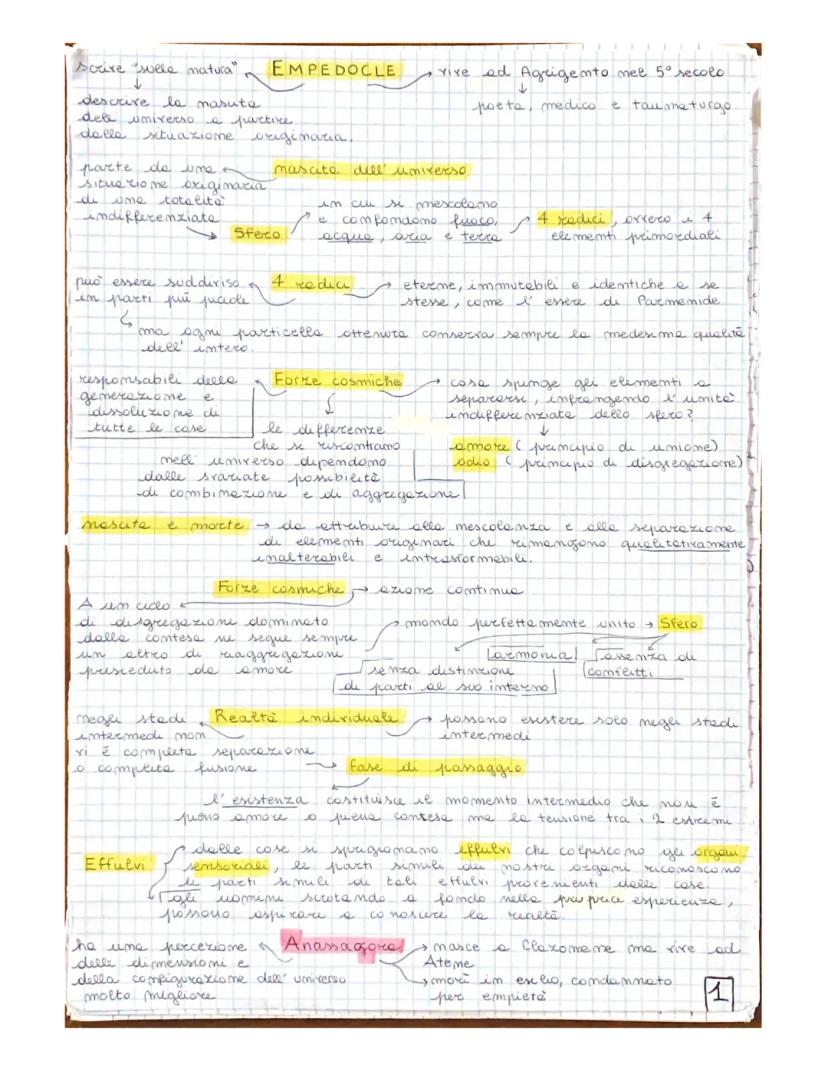 scrive "sulla natura" EMPEDOCLE vive ad Agrigento nel 5° secolo
descrive la nascita
poeta, medico e taumaturgo
dell'universo a partire
dalla situazione originaria.
parte da una nascita dell'universo
situazione originaria
di una totalità in cui si mescolano
indifferenziata e confondono fuoco, 4 radici, ovvero i 4
Sfero acqua, aria e terra elementi primordiali
può essere suddiviso 4 radici eterne, immutabili e identiche a se
in parti più piccole stesse, come l'essere di Parmenide
ma ogni particella ottenuta conserva sempre la medesima qualità
dell'intero.
responsabili della Forze cosmiche cosa spinge gli elementi a
generazione e separarsi, infrangendo l'unità
dissoluzione di indifferenziata dello sfero?
tutte le cose le differenze
che si riscontrano amore (principio di unione)
nell'universo dipendono odio (principio di disgregazione)
dalle svariate possibilità
di combinazione e di aggregazione
nascita e morte → da attribuire alla mescolanza e alla separazione
di elementi originari che rimangono qualitativamente
inalterabili e intrasformabili.
Forze cosmiche → azione continua
A un ciclo
di disgregazione dominato mondo perfettamente unito → Sfero
dalla contesa ne segue sempre
un altro di riaggregazione armonia assenza di
presieduto da amore senza distinzione conflitti
di parti al suo interno
negli stadi Realtà individuale possono esistere solo negli stadi
intermedi non intermedi
vi è completa separazione
o completa fusione → fase di passaggio
l'esistenza costituisce il momento intermedio che non è
pieno amore o piena contesa ma la tensione tra i 2 estremi
dalle cose si sprigionano effluvi che colpiscono gli organi
Effulvi sensoriali, le parti simili dei nostri organi riconoscono
le parti simili di tali effluvi provenienti dalle cose.
gli uomini scrutando a fondo nella propria esperienza,
possono aspirare a conoscere la realtà.
ha una percezione Anassagora nasce a Clazomene ma vive ad
delle dimensioni e Atene
della configurazione dell'universo morì in esilio, condannato
molto migliore per empietà
1